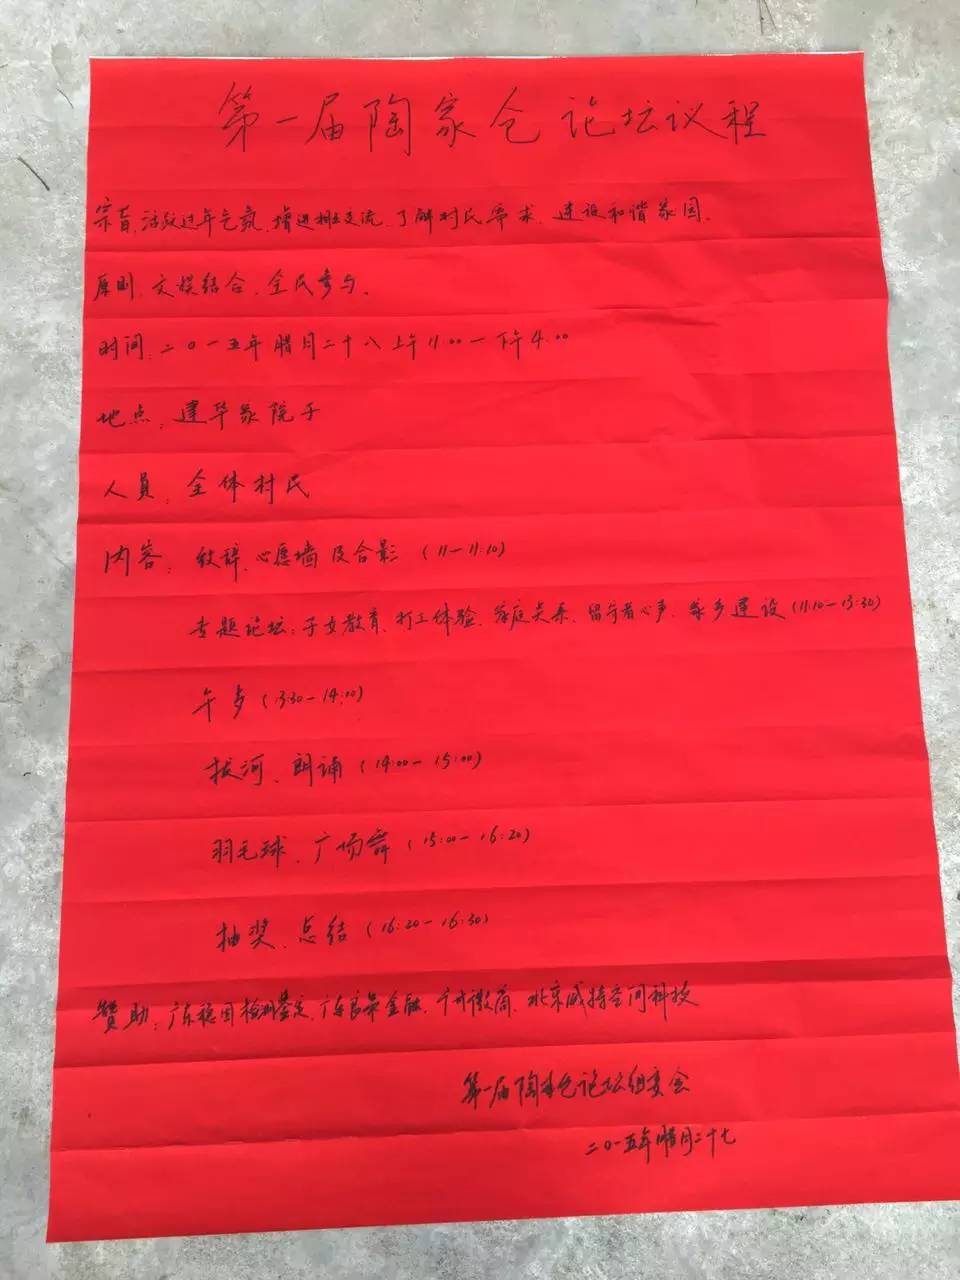 第一届陶家仓论坛议程
宗旨:活跃过年气氛、增进相互交流、了解村民需求、建设和谐家园。
原则、文娱结合、全民参与。
时间:二〇一五年腊月二十八上午11:00—下午4:00
地点:建华家院子
人员:全体村民
内容:致辞、心愿墙及合影(11—11:10)
专题论坛:子女教育、打工体验、家庭关系、留守者心声、家乡建设(11:10—13:30)
午歺(13:30—14:00)
拔河、朗诵(14:00—15:00)
羽毛球、广场舞(15:00—16:20)
抽奖、总结(16:20—16:30)
赞助:广东稳固检测鉴定、广东 金融、 微商、北京威特空间科技
第一届陶家仓论坛组委会
二〇一五年腊月二十七